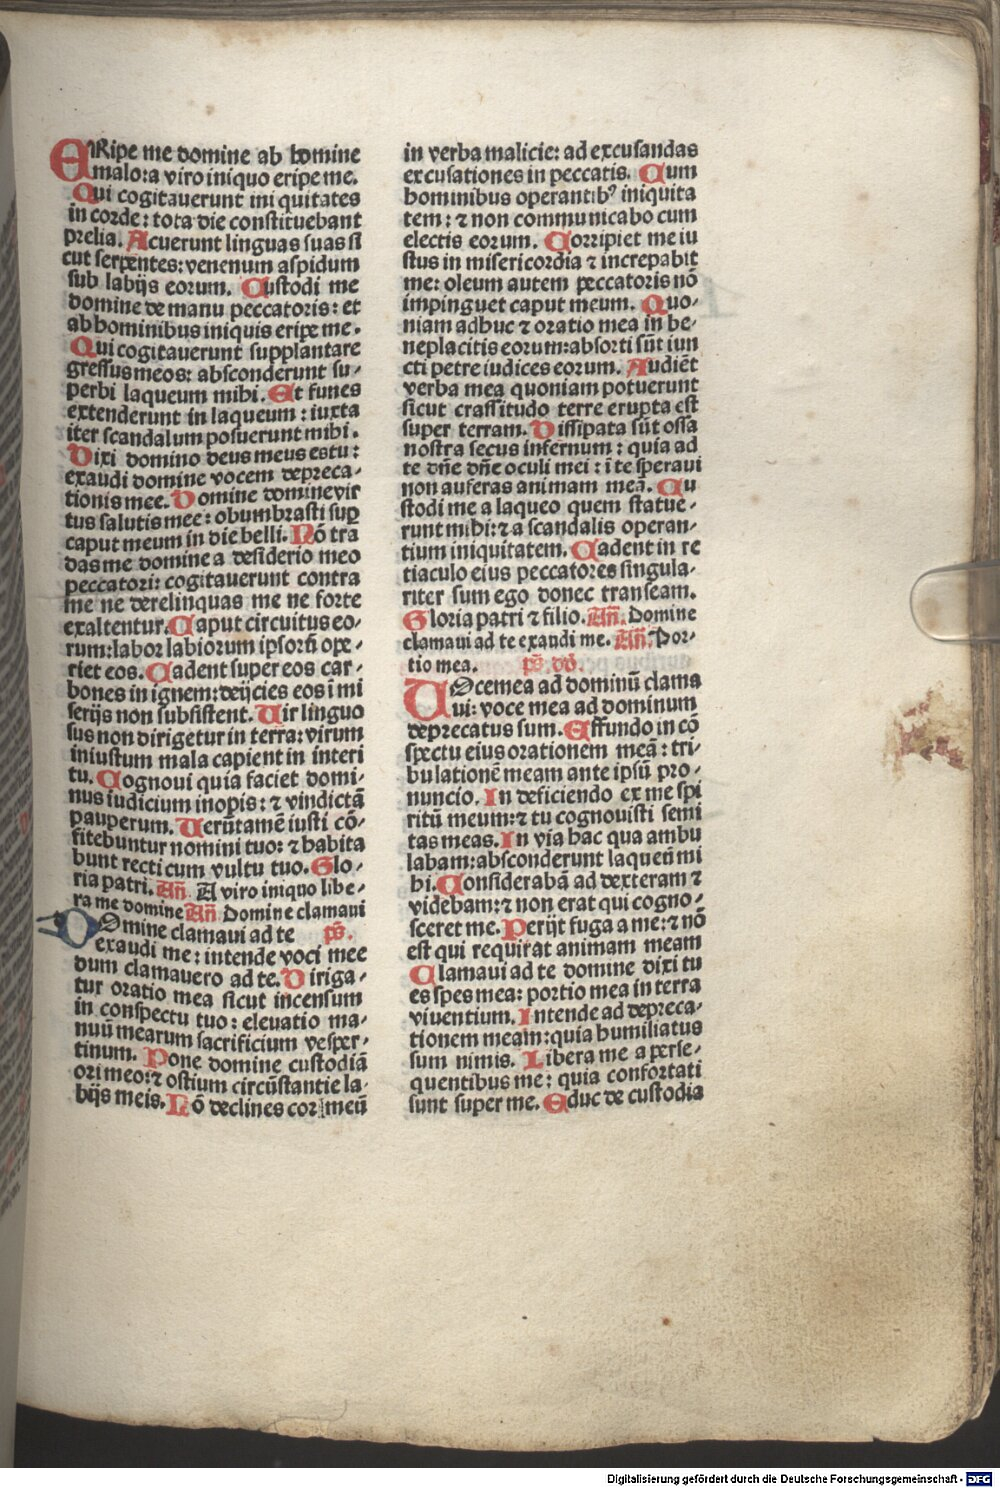 ERipe me domine ab homine
malo: a viro iniquo eripe me.
Qui cogitauerunt iniquitates
in corde: tota die constituebant
prelia. Acuerunt linguas suas si
cut serpentes: venenum aspidum
sub labijs eorum. Custodi me
domine de manu peccatoris: et
ab hominibus iniquis eripe me.
Qui cogitauerunt supplantare
gressus meos: absconderunt su-
perbi laqueum mihi. Et funes
extenderunt in laqueum: iuxta
iter scandalum posuerunt mihi.
Dixi domino deus meus es tu:
exaudi domine vocem depreca-
tionis mee. Domine domine vir
tus salutis mee: obumbrasti sup
caput meum in die belli. Nō tra
das me domine a desiderio meo
peccatori: cogitauerunt contra
me ne derelinquas me ne forte
exaltentur. Caput circuitus eo-
rum: labor labiorum ipsorū ope-
riet eos. Cadent super eos car-
bones in ignem: deijcies eos ī mi
serijs non subsistent. Uir linguo
sus non dirigetur in terra: virum
iniustum mala capient in interi
tu. Cognoui quia faciet domi-
nus iudicium inopis: ⁊ vindictā
pauperum. Uerūtamē iusti cō-
fitebuntur nomini tuo: ⁊ habita
bunt recti cum vultu tuo. Glo-
ria patri. Añ. A viro iniquo libe-
ra me domine Añ. Domine clamaui
DOmine clamaui ad te ps̄.
exaudi me: intende voci mee
dum clamauero ad te. Diriga-
tur oratio mea sicut incensum
in conspectu tuo: eleuatio ma-
nuū mearum sacrificium vesper-
tinum. Pone domine custodiā
ori meo: ⁊ ostium circūstantie la-
bijs meis. Nō declines cor meū
in verba malicie: ad excusandas
excusationes in peccatis. Cum
hominibus operantibꝰ iniquita
tem: ⁊ non communicabo cum
electis eorum. Corripiet me iu
stus in misericordia ⁊ increpabit
me: oleum autem peccatoris nō
impinguet caput meum. Quo-
niam adhuc ⁊ oratio mea in be-
neplacitis eorum: absorti sūt iun
cti petre iudices eorum. Audiēt
verba mea quoniam potuerunt
sicut crassitudo terre erupta est
super terram. Dissipata sūt ossa
nostra secus infernum: quia ad
te dñe dñe oculi mei: ī te speraui
non auferas animam meā. Cu
stodi me a laqueo quem statue-
runt mihi: ⁊ a scandalis operan-
tium iniquitatem. Cadent in re
tiaculo eius peccatores singula-
riter sum ego donec transeam.
Gloria patri ⁊ filio. Añ. Domine
clamaui ad te exaudi me. Añ. Por-
tio mea. ps̄. dd̄.
UOce mea ad dominū clama
ui: voce mea ad dominum
deprecatus sum. Effundo in cō
spectu eius orationem meā: tri-
bulationē meam ante ipsū pro-
nuncio. In deficiendo ex me spi
ritū meum: ⁊ tu cognouisti semi
tas meas. In via hac qua ambu
labam: absconderunt laqueū mi
hi. Considerabā ad dexteram ⁊
videbam: ⁊ non erat qui cogno-
sceret me. Perijt fuga a me: ⁊ nō
est qui requirat animam meam
Clamaui ad te domine dixi tu
es spes mea: portio mea in terra
viuentium. Intende ad depreca-
tionem meam: quia humiliatus
sum nimis. Libera me a perse-
quentibus me: quia confortati
sunt super me. Educ de custodia
Digitalisierung gefördert durch die Deutsche Forschungsgemeinschaft - DFG